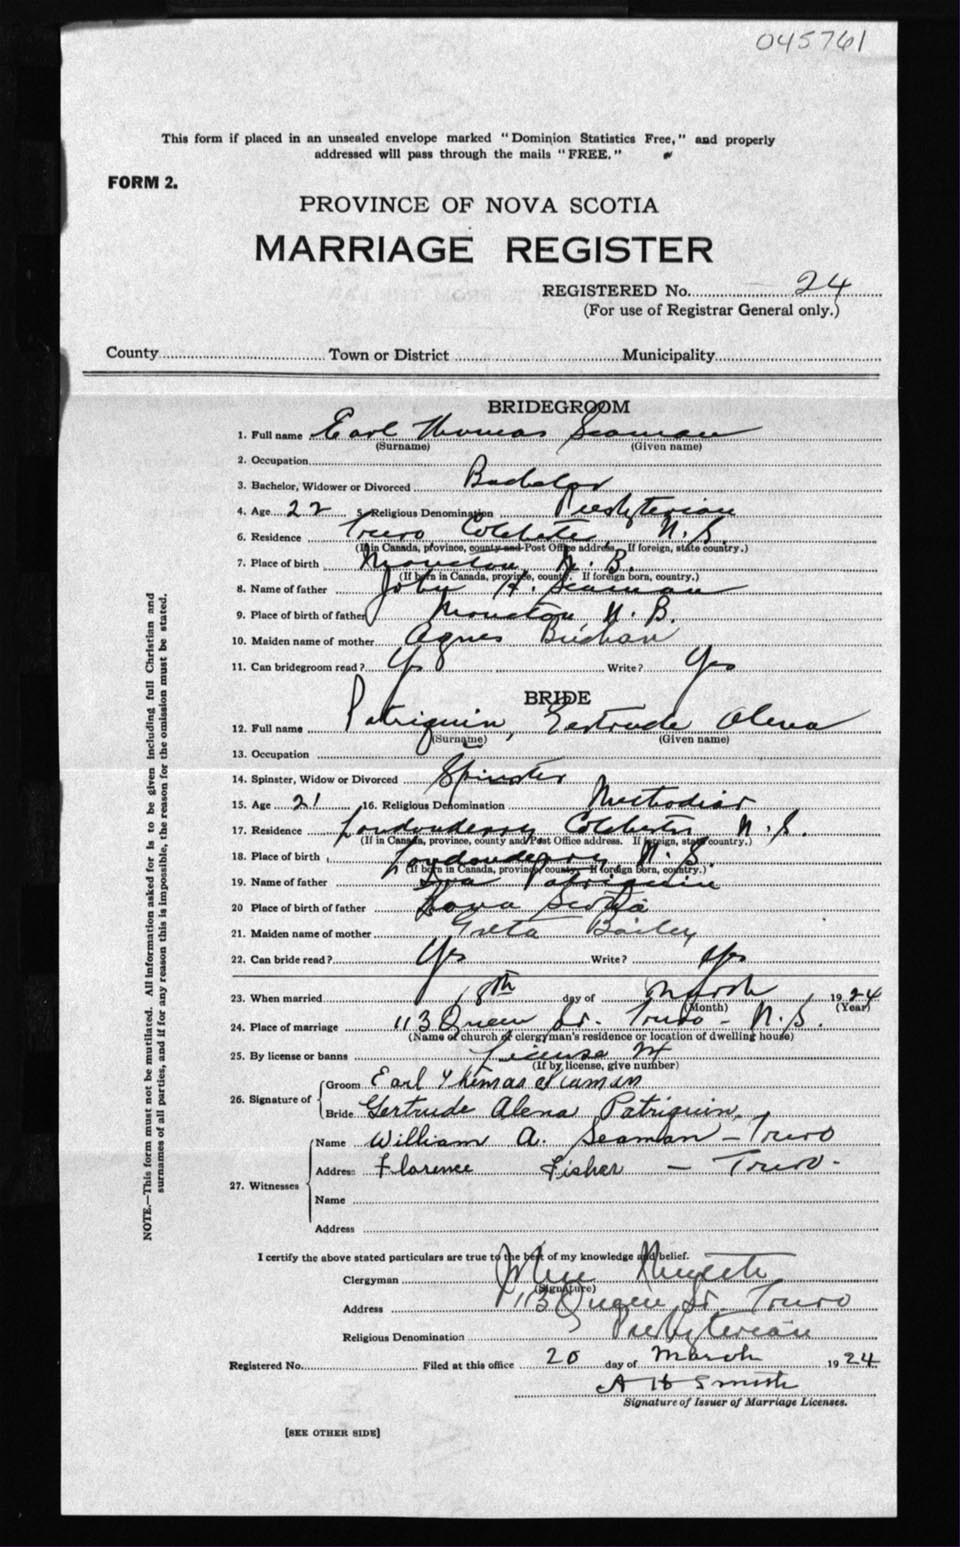 045761
This form if placed in an unsealed envelope marked "Dominion Statistics Free," and properly
addressed will pass through the mails "FREE."
FORM 2.
PROVINCE OF NOVA SCOTIA
MARRIAGE REGISTER
REGISTERED No. 24
(For use of Registrar General only.)
County Town or District Municipality
BRIDEGROOM
1. Full name Earl Thomas Seaman
(Surname) (Given name)
2. Occupation
3. Bachelor, Widower or Divorced Bachelor
4. Age 22 5. Religious Denomination Presbyterian
6. Residence Truro Colchester N.S.
(If in Canada, province, county and Post Office address. If foreign, state country.)
7. Place of birth Moncton, N.B.
(If born in Canada, province, county. If foreign born, country.)
8. Name of father John H. Seaman
9. Place of birth of father Moncton N.B.
10. Maiden name of mother Agnes
11. Can bridegroom read? Yes Write? Yes
BRIDE
12. Full name Patriquin, Gertrude Alena
(Surname) (Given name)
13. Occupation
14. Spinster, Widow or Divorced Spinster
15. Age 21 16. Religious Denomination Methodist
17. Residence Londonderry Colchester, N.S.
(If in Canada, province, county and Post Office address. If foreign, state country.)
18. Place of birth Londonderry, N.S.
(If born in Canada, province, county. If foreign born, country.)
19. Name of father Patriquin
20 Place of birth of father Nova Scotia
21. Maiden name of mother Greta Bailey
22. Can bride read? Yes Write? Yes
23. When married 18th day of March 1924
(Month) (Year)
24. Place of marriage 113 Queen St. Truro - N.S.
(Name of church of clergyman's residence or location of dwelling house)
25. By license or banns License
(If by license, give number)
26. Signature of Groom Earl Thomas Seaman
Bride Gertrude Alena Patriquin
27. Witnesses Name William A. Seaman - Truro
Address Florence Fisher - Truro.
Name
Address
I certify the above stated particulars are true to the best of my knowledge and belief.
Clergyman
(Signature)
Address 113 Queen St. Truro
Religious Denomination Presbyterian
Registered No. Filed at this office 20 day of March 1924
A H Smith
Signature of Issuer of Marriage Licenses.
[SEE OTHER SIDE]
NOTE.—This form must not be mutilated. All information asked for is to be given including full Christian and
surnames of all parties, and if for any reason this is impossible, the reason for the omission must be stated.